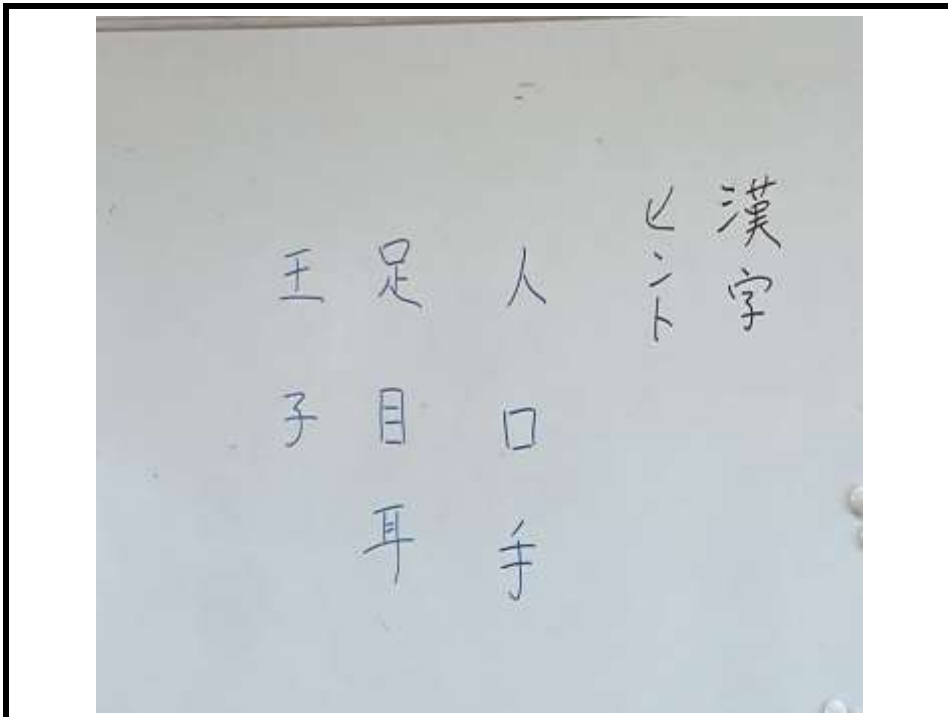 漢字
ヒント
人口手
足目耳
王子